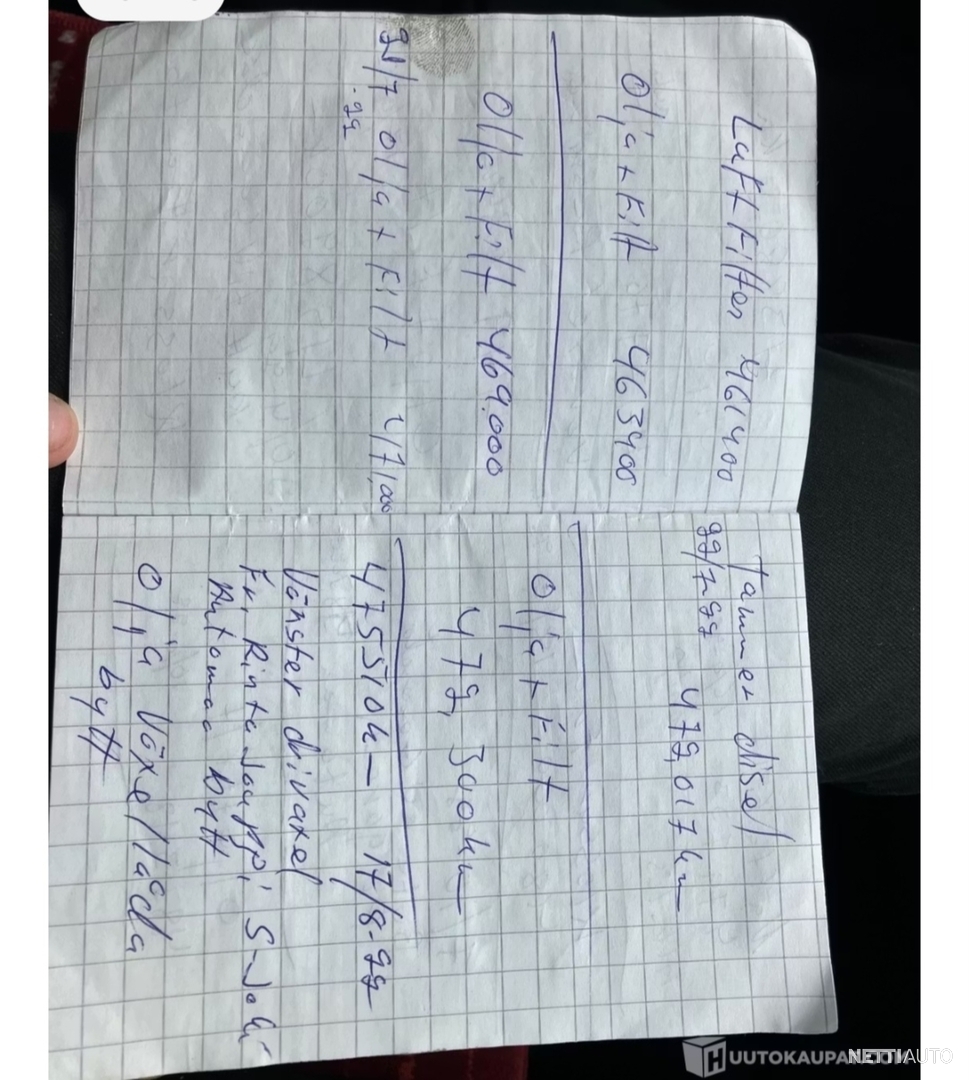 Luft Filter 461400
Olja + Filt 463400
Olja + Filt 469.000
Olja + Filt 471,000
Tammer disel
479,017 km
Olja + Filt
479,300 km
475510 km 17/8-99
Vänster drivaxel
Fr. Rinta-Jouppi S-Joki
Automaa bytt
Olja Växellåda
bytt
HUUTOKAUPAT.COM
NETTIAUTO